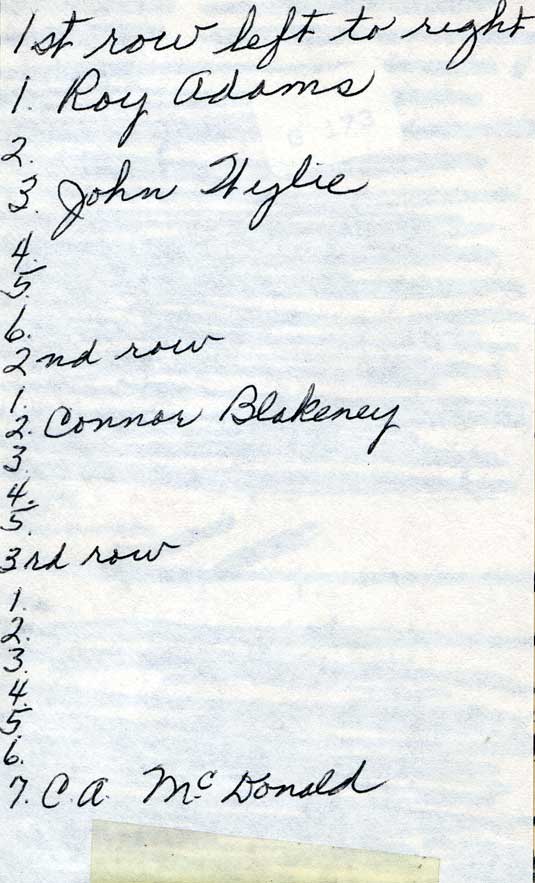 1st row left to right
1. Roy Adams
2.
3. John Wylie
4.
5.
6.
2nd row
1.
2. Connor Blakeney
3
4.
5.
3rd row
1.
2.
3.
4.
5.
6.
7. C.A. McDonald